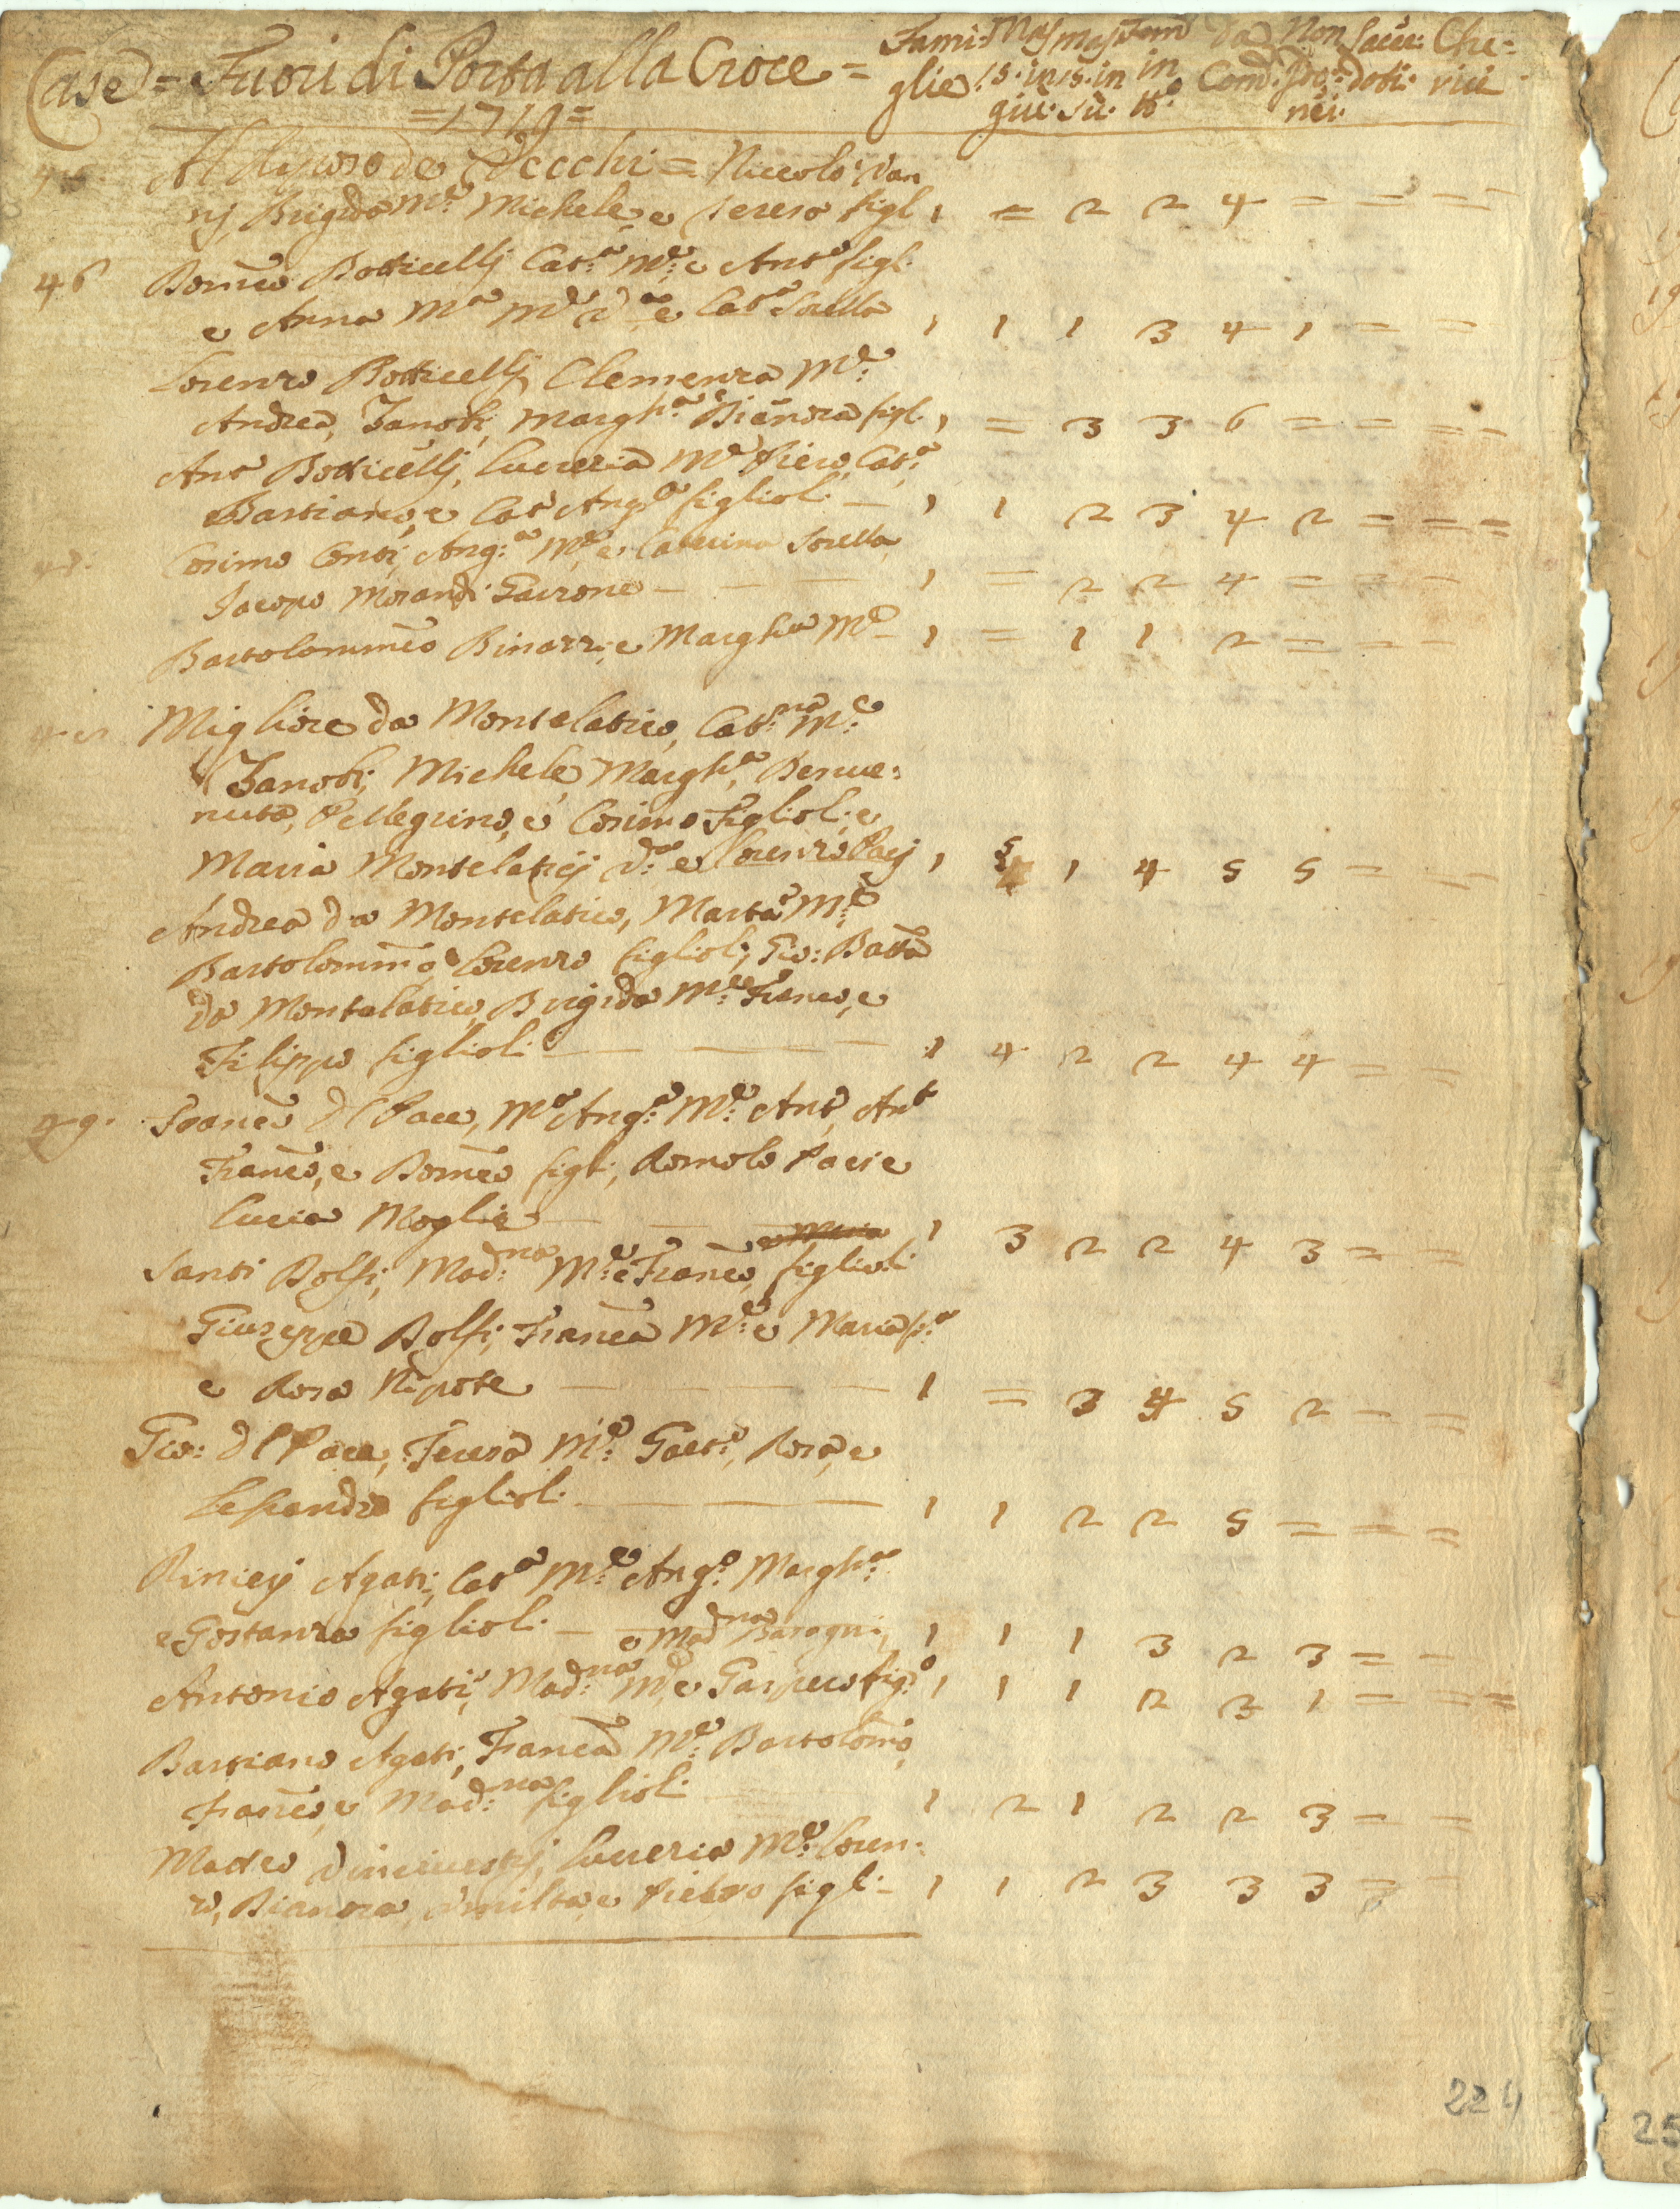 Case = Fuori di Porta alla Croce =
= 1719 =
Fami: Mas mas Fem da Non Sacer: Che:
glie 15: in 15: in in Com: Pro: doti: rici
giu: su: 15.° nei.
Al Riposo de Vecchi = Niccolò Van
nj, Brigida M.e Michele, e Teresa figl. 1 = 2 2 4 = = =
46 Domco Botticellj Cat.a M.e e Ant.o figl:
e Anna M.a M.e V.a e Cat.a Sorella 1 1 1 3 4 1 = =
Lorenzo Botticellj, Clemenza M.e
Andrea, Zanobi, Margh.a e Bianora figl. 1 = 3 3 6 = = = =
Ant.o Botticellj, Lucrezia M.e Piero, Cat.a
Bastiano, e Cat.a Ang.a figlioli — 1 1 2 3 4 2 = = =
Cosimo Conti, Ang.a M.e e Caterina Sorella,
Jacopo Morandi Garzone — — — 1 = 2 2 4 = = =
Bartolommeo Binazzi, e Margh.a M.e 1 = 1 1 2 = = =
Migliore da Montelatico, Cat.na M.e
Zanobi, Michele, Margh.a, Benve:
nuta, Pellegrino, e Cosimo Figlioli, e
Maria Montelaticj V.a e Lorenzo Pacj 1 5 1 4 5 5 = =
Andrea da Montelatico, Marta M.e
Bartolommo, Lorenzo figlioli; Gio: Batta
da Montelatico, Brigida M.e Franco, e
Filippo figlioli — — — 1 4 2 2 4 4 = =
Franco dl Pace, M.a Ang.a M.e Ant.o, Ant.o
Franco, e Domco figli, Romolo Paci e
Lucia Moglie — — — 1 3 2 2 4 3 = =
Santi Dolfi, Mad.na M.e e Franco, figlioli
Giuseppe Dolfi, Franca M.e e Maria f.a
e Rosa Nipote — — — 1 = 3 4 5 2 = =
Gio: dl Pace, Teresa M.e Gaet.o, Rosa, e
Lesandro figlioli — — — 1 1 2 2 5 = = =
Rinieri Agati, Cat.a M.e Ang.o Margh.a
e Gostanza figlioli — e Mad.na Baragni, 1 1 1 3 2 3 = =
Antonio Agati, Mad.na M.e e Gaspero fig.o 1 1 1 2 3 1 = = =
Bastiano Agati, Franca M.e Bartolomo,
Franco, e Mad.na figlioli 1 2 1 2 2 3 = =
Matteo Vinciuestj, Lucrezia M.e Loren:
zo, Bianora, e Pietro figli — 1 1 2 3 3 3 = =
224